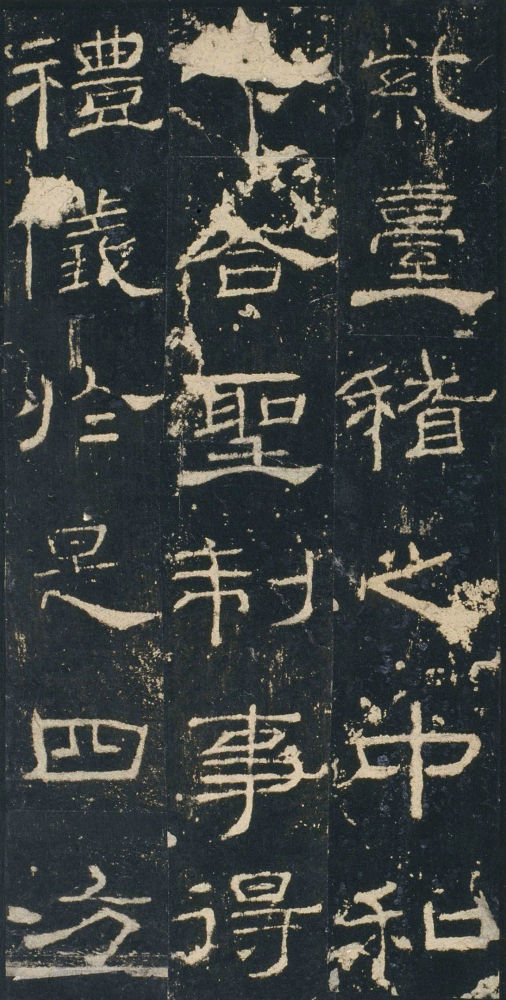 紫臺稽之中和
下合聖制事得
禮儀於是四方